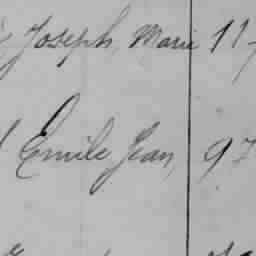 Joseph Marie 11
Emile Jean, 97